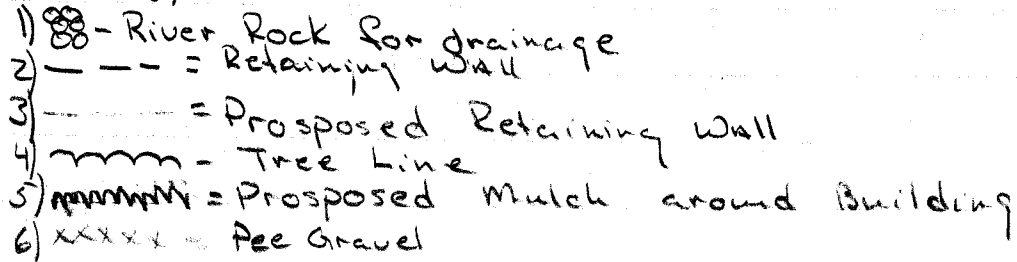 1) - River Rock for drainage
2) — — — = Retaining Wall
3) = Prosposed Retaining Wall
4) - Tree Line
5) = Prosposed Mulch around Building
6) xxxxx - Pee Gravel